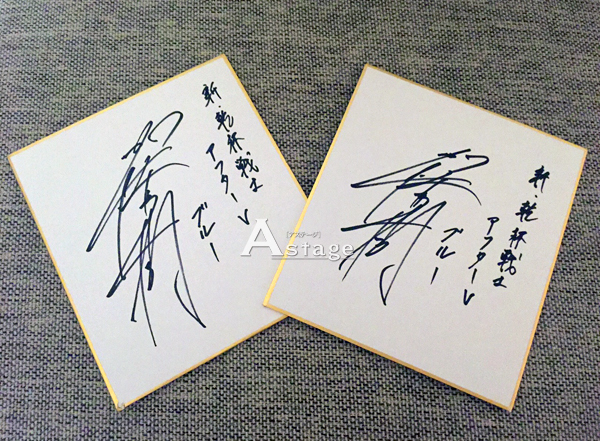 新・乾杯戦士
アフターV
ブルー
新・乾杯戦士
アフターV
ブルー
[アステージ]
Astage